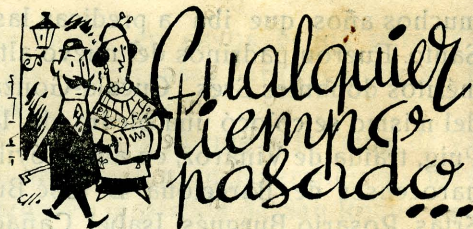 Cualquier
tiempo
pasado...